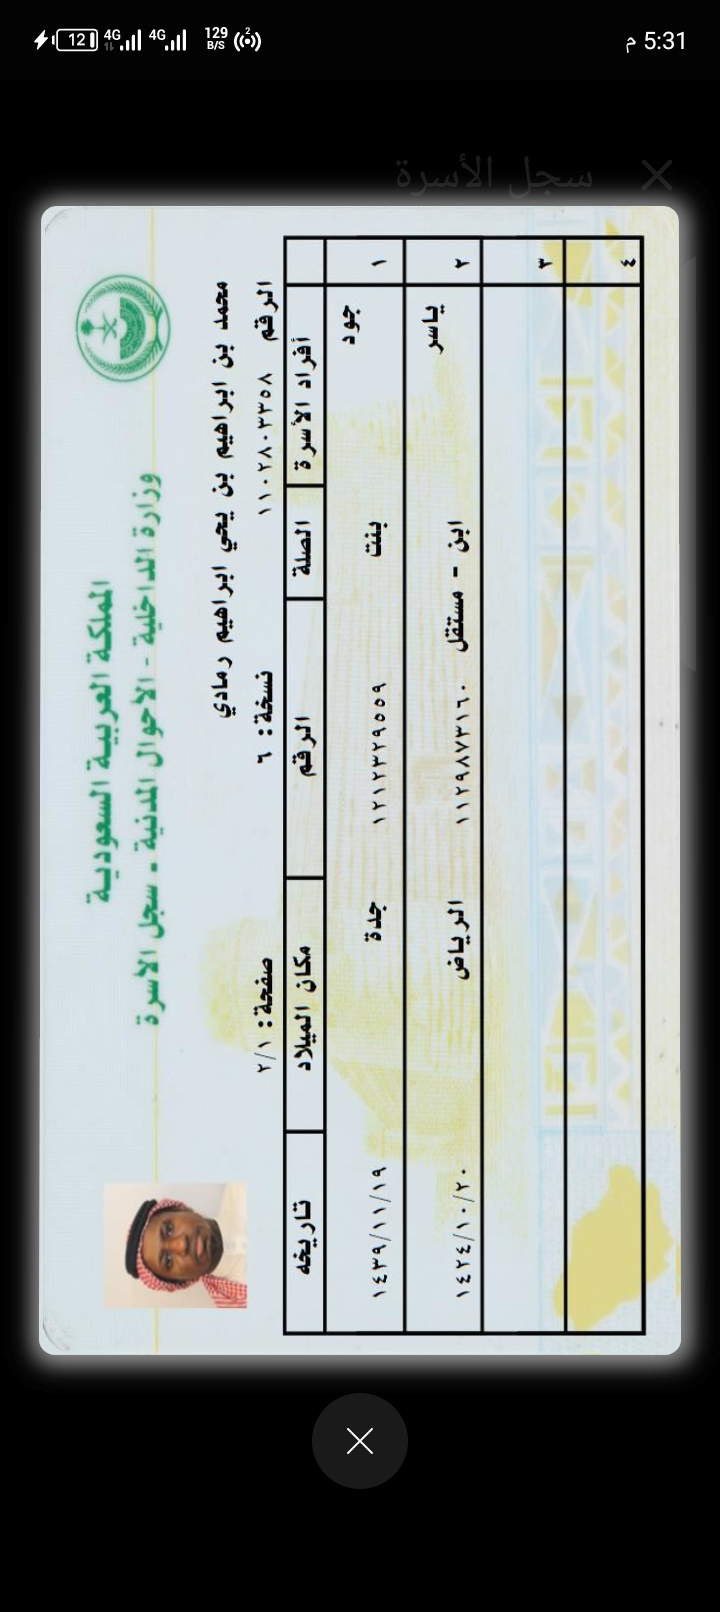 12 4G 4G 129 B/S 2
5:31 م
سجل الأسرة
المملكة العربية السعودية
وزارة الداخلية - الأحوال المدنية - سجل الأسرة
محمد بن ابراهيم بن يحي ابراهيم رمادي
الرقم ١١٠٢٨٠٣٣٥٨ نسخة: ٦ صفحة: ٢/١
أفراد الأسرة الصلة الرقم مكان الميلاد تاريخه
١ جود بنت ١٢١٢٣٢٩٥٥٩ جدة ١٤٣٩/١١/١٩
٢ ياسر ابن - مستقل ١١٢٩٨٧٣١٦٠ الرياض ١٤٢٤/١٠/٢٠
٣
٤